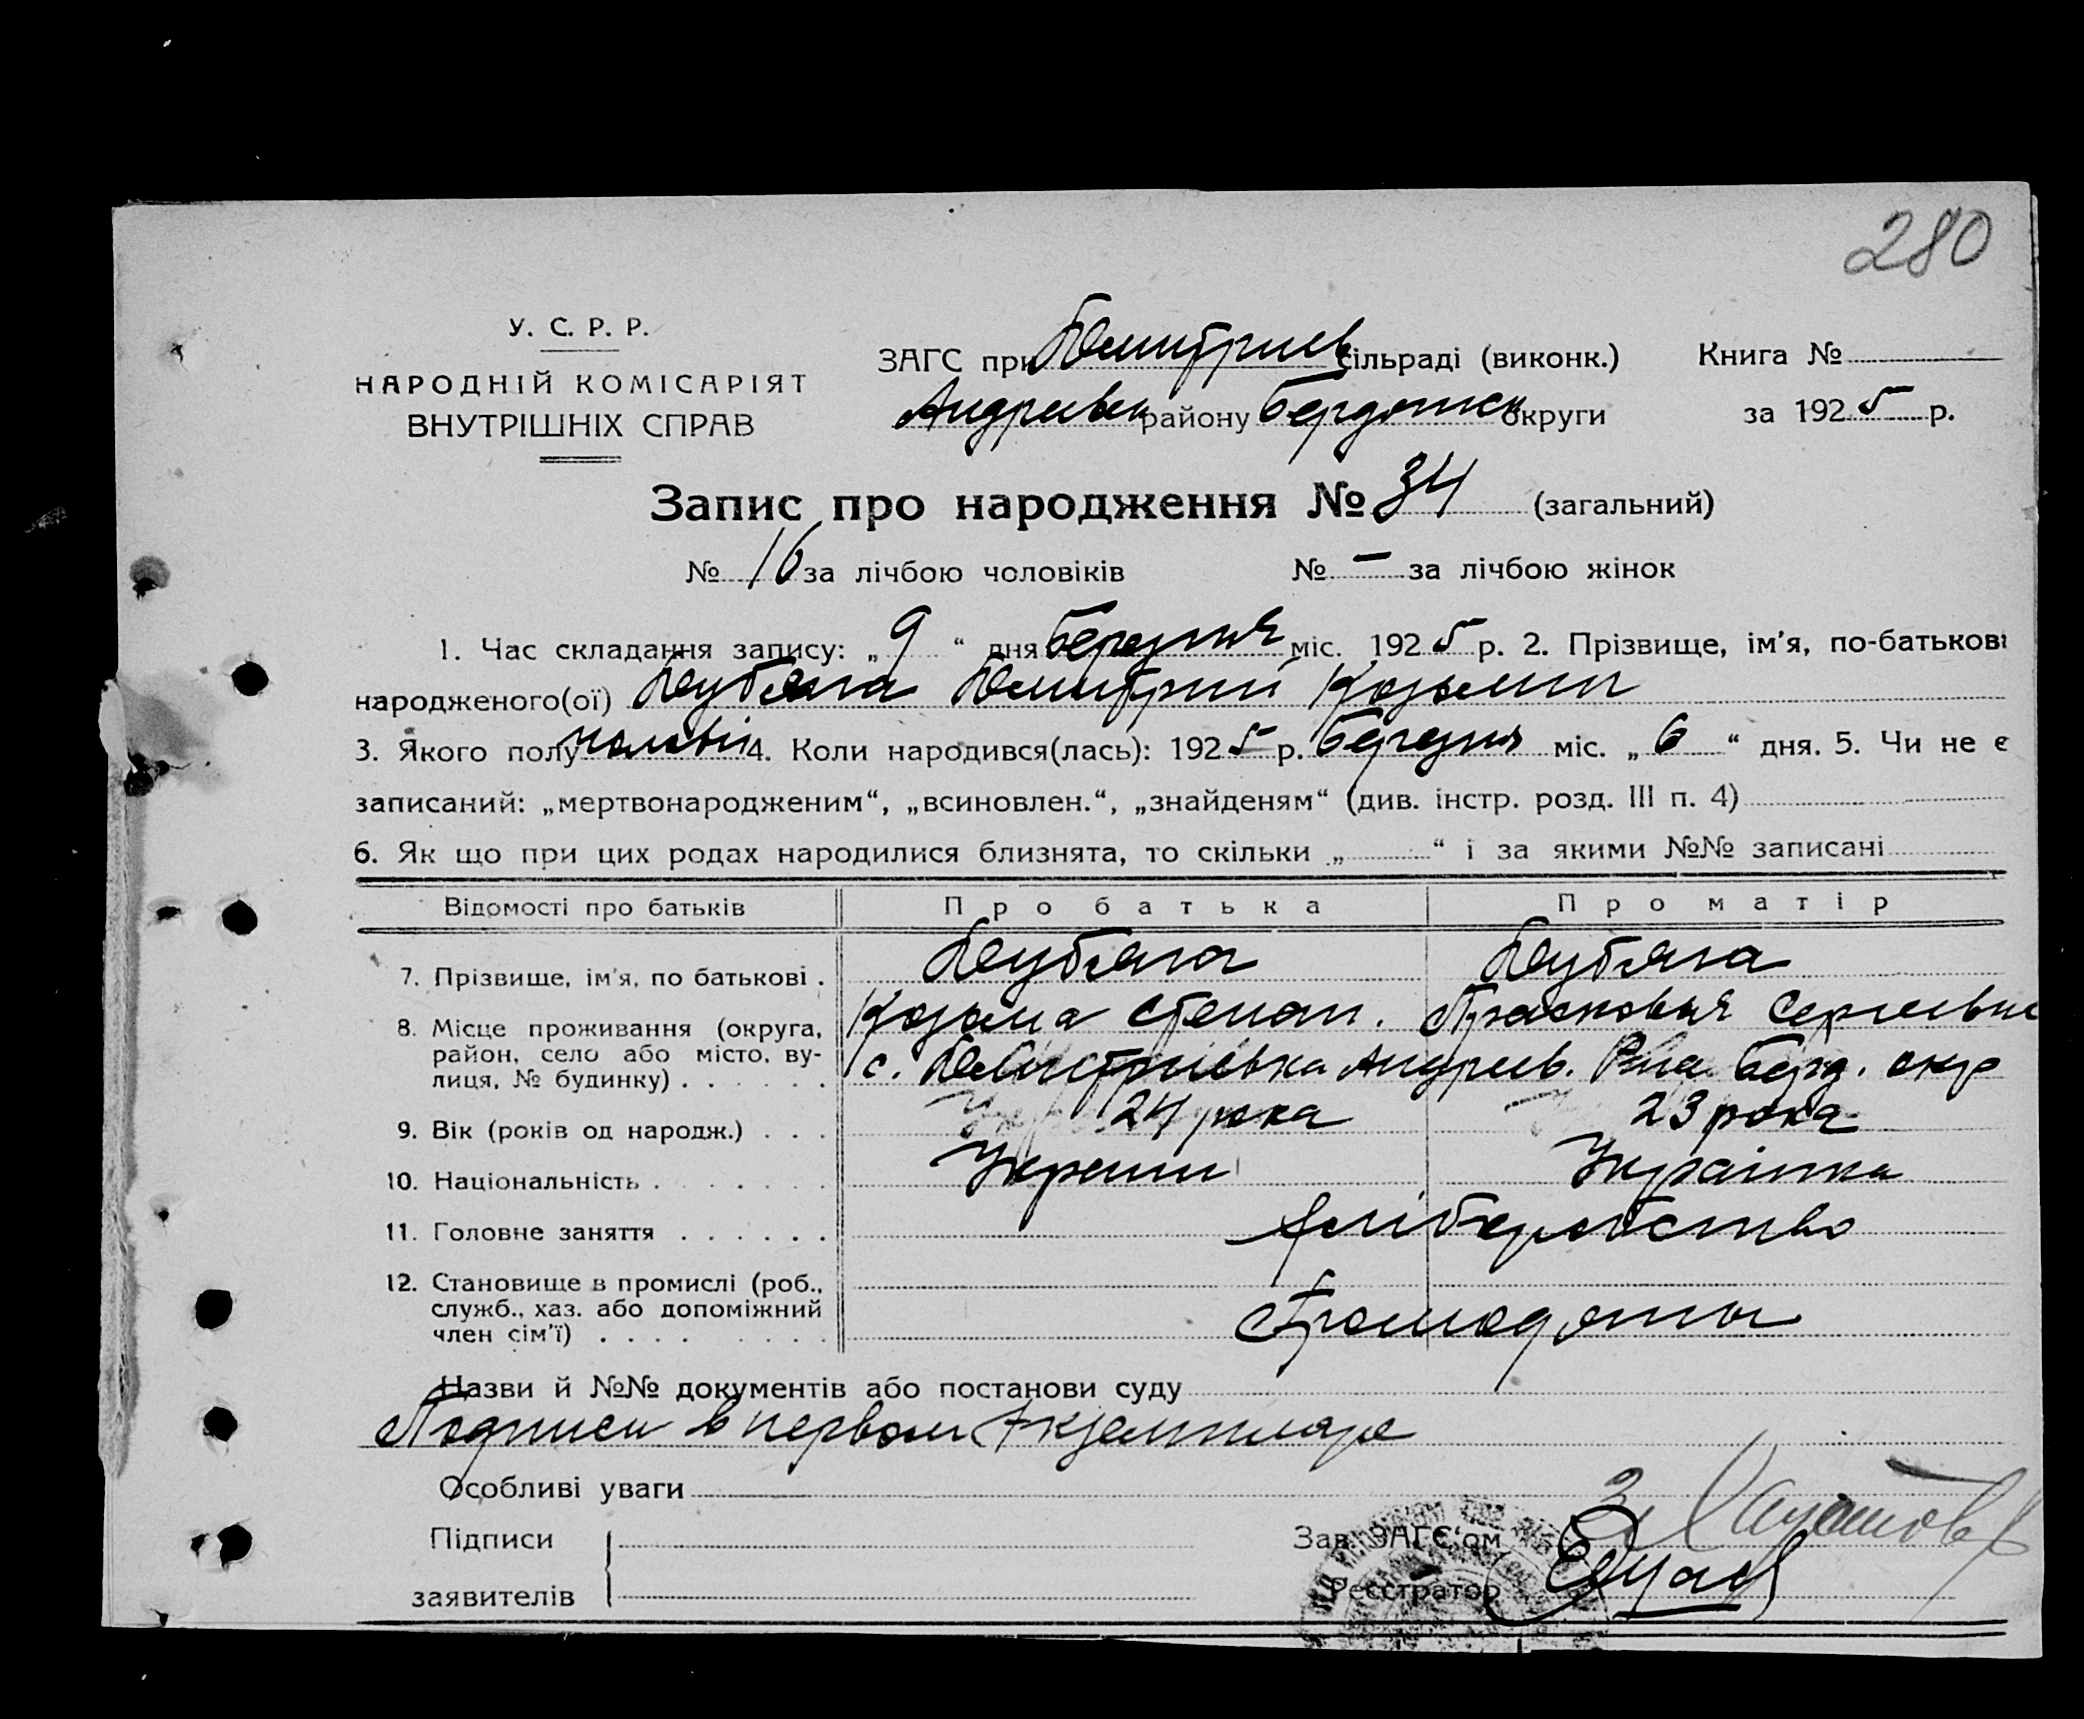 280
У. С. Р. Р.
НАРОДНІЙ КОМІСАРІЯТ
ВНУТРІШНІХ СПРАВ
ЗАГС при Дмитриев сільраді (виконк.) Книга №
Андреевск району Бердянск округи за 1925 р.
Запис про народження № 34 (загальний)
№ 16 за лічбою чоловіків № — за лічбою жінок
1. Час складання запису: „9“ дня березня міс. 1925 р. 2. Прізвище, ім'я, по-батькові
народженого(ої) Дмитрий Козьмич
3. Якого полу чоловічі 4. Коли народився(лась): 1925 р. березня міс. „6“ дня. 5. Чи не є
записаний: „мертвонародженим“, „всиновлен.“, „знайденям“ (див. інстр. розд. III п. 4)
6. Як що при цих родах народилися близнята, то скільки „ “ і за якими №№ записані
Відомості про батьків Про батька Про матір
7. Прізвище, ім'я, по батькові .
Козьма Степан. Прасковья Сергеевна
8. Місце проживання (округа,
район, село або місто, ву-
лиця, № будинку) . . . . . . с. Дмитриевка Андреев. Р-на Берд. окр
9. Вік (років од народж.) . . . 24 рока 23 рока
10. Національність . . . . . . . Украинец Українка
11. Головне заняття . . . . . . хліборобство
12. Становище в промислі (роб.,
служб., хаз. або допоміжний
член сім'ї) . . . . . . . .
Назви й №№ документів або постанови суду
Подписи в первом Экземпляре
Особливі уваги
Підписи
заявителів
Зав. ЗАГС'ом
Реєстратор